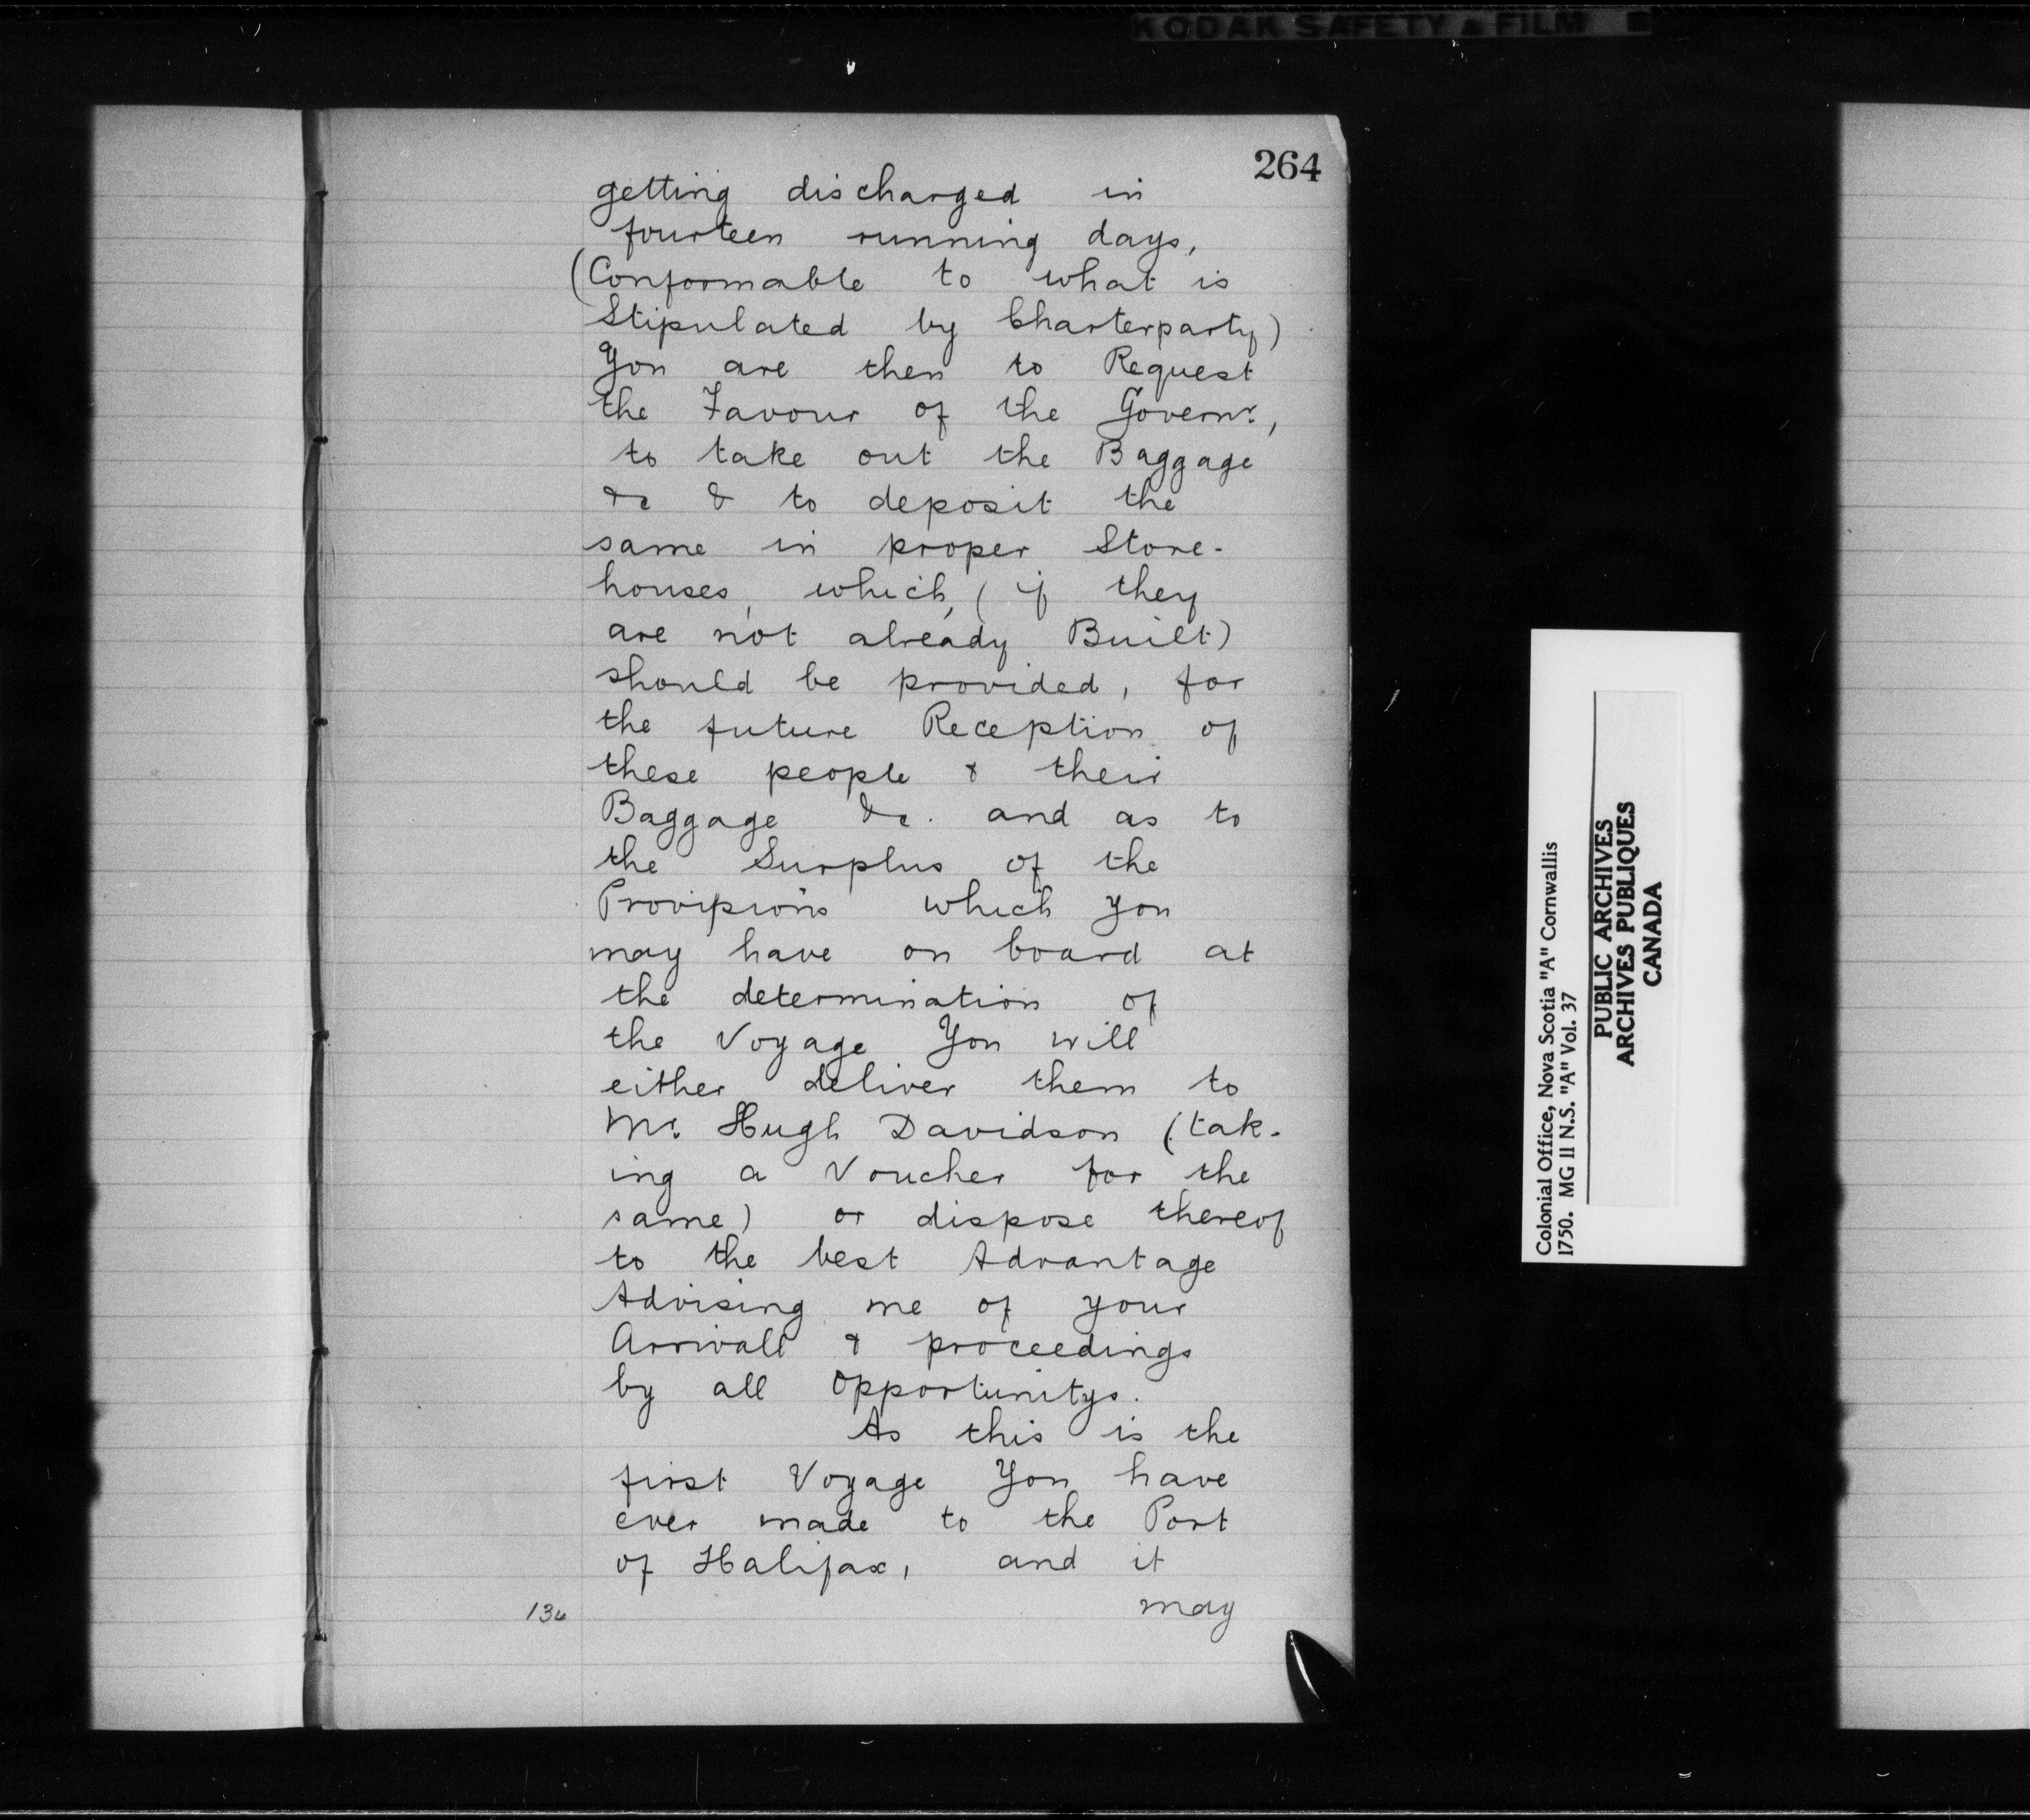 KODAK SAFETY FILM
264
getting discharged in
fourteen running days,
(Conformable to what is
Stipulated by Charterparty)
You are then to Request
the Favour of the Governr.,
to take out the Baggage
&c & to deposit the
same in proper Store-
houses, which, (if they
are not already Built)
should be provided, for
the future Reception of
these people & their
Baggage &c. and as to
the Surplus of the
Provisions which you
may have on board at
the determination of
the Voyage You will
either deliver them to
Mr. Hugh Davidson (tak-
ing a Voucher for the
same) or dispose thereof
to the best Advantage
Advising me of your
Arrivall & proceedings
by all Opportunitys.
As this is the
first Voyage You have
ever made to the Port
of Halifax, and it
may
Colonial Office, Nova Scotia "A" Cornwallis
1750. MG 11 N.S. "A" Vol. 37
PUBLIC ARCHIVES
ARCHIVES PUBLIQUES
CANADA